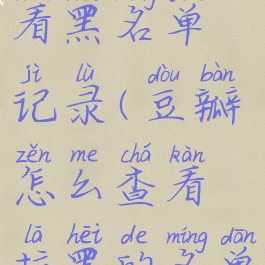 看黑名单
jì lù dòu bàn
记录(豆瓣
zěn me chá kàn
怎么查看
lā hēi de míng dān
拉黑的名单